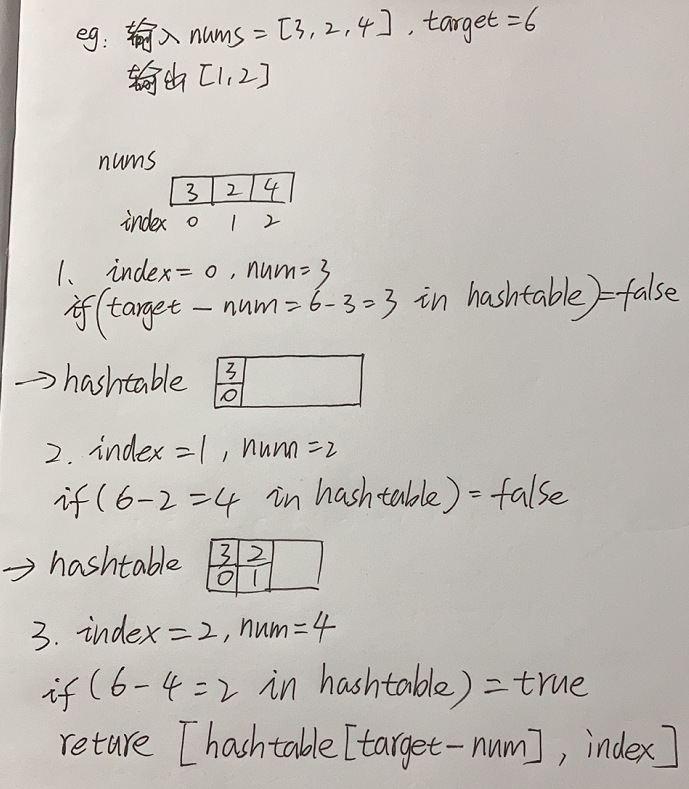 eg: 输入 nums = [3, 2, 4], target = 6
输出 [1, 2]
nums
3 2 4
index 0 1 2
1、 index = 0, num = 3
if(target - num = 6-3 = 3 in hashtable) = false
→ hashtable 3
0
2. index = 1, num = 2
if(6-2 = 4 in hashtable) = false
→ hashtable 3 2
0 1
3. index = 2, num = 4
if(6-4 = 2 in hashtable) = true
reture [hashtable[target-num], index]